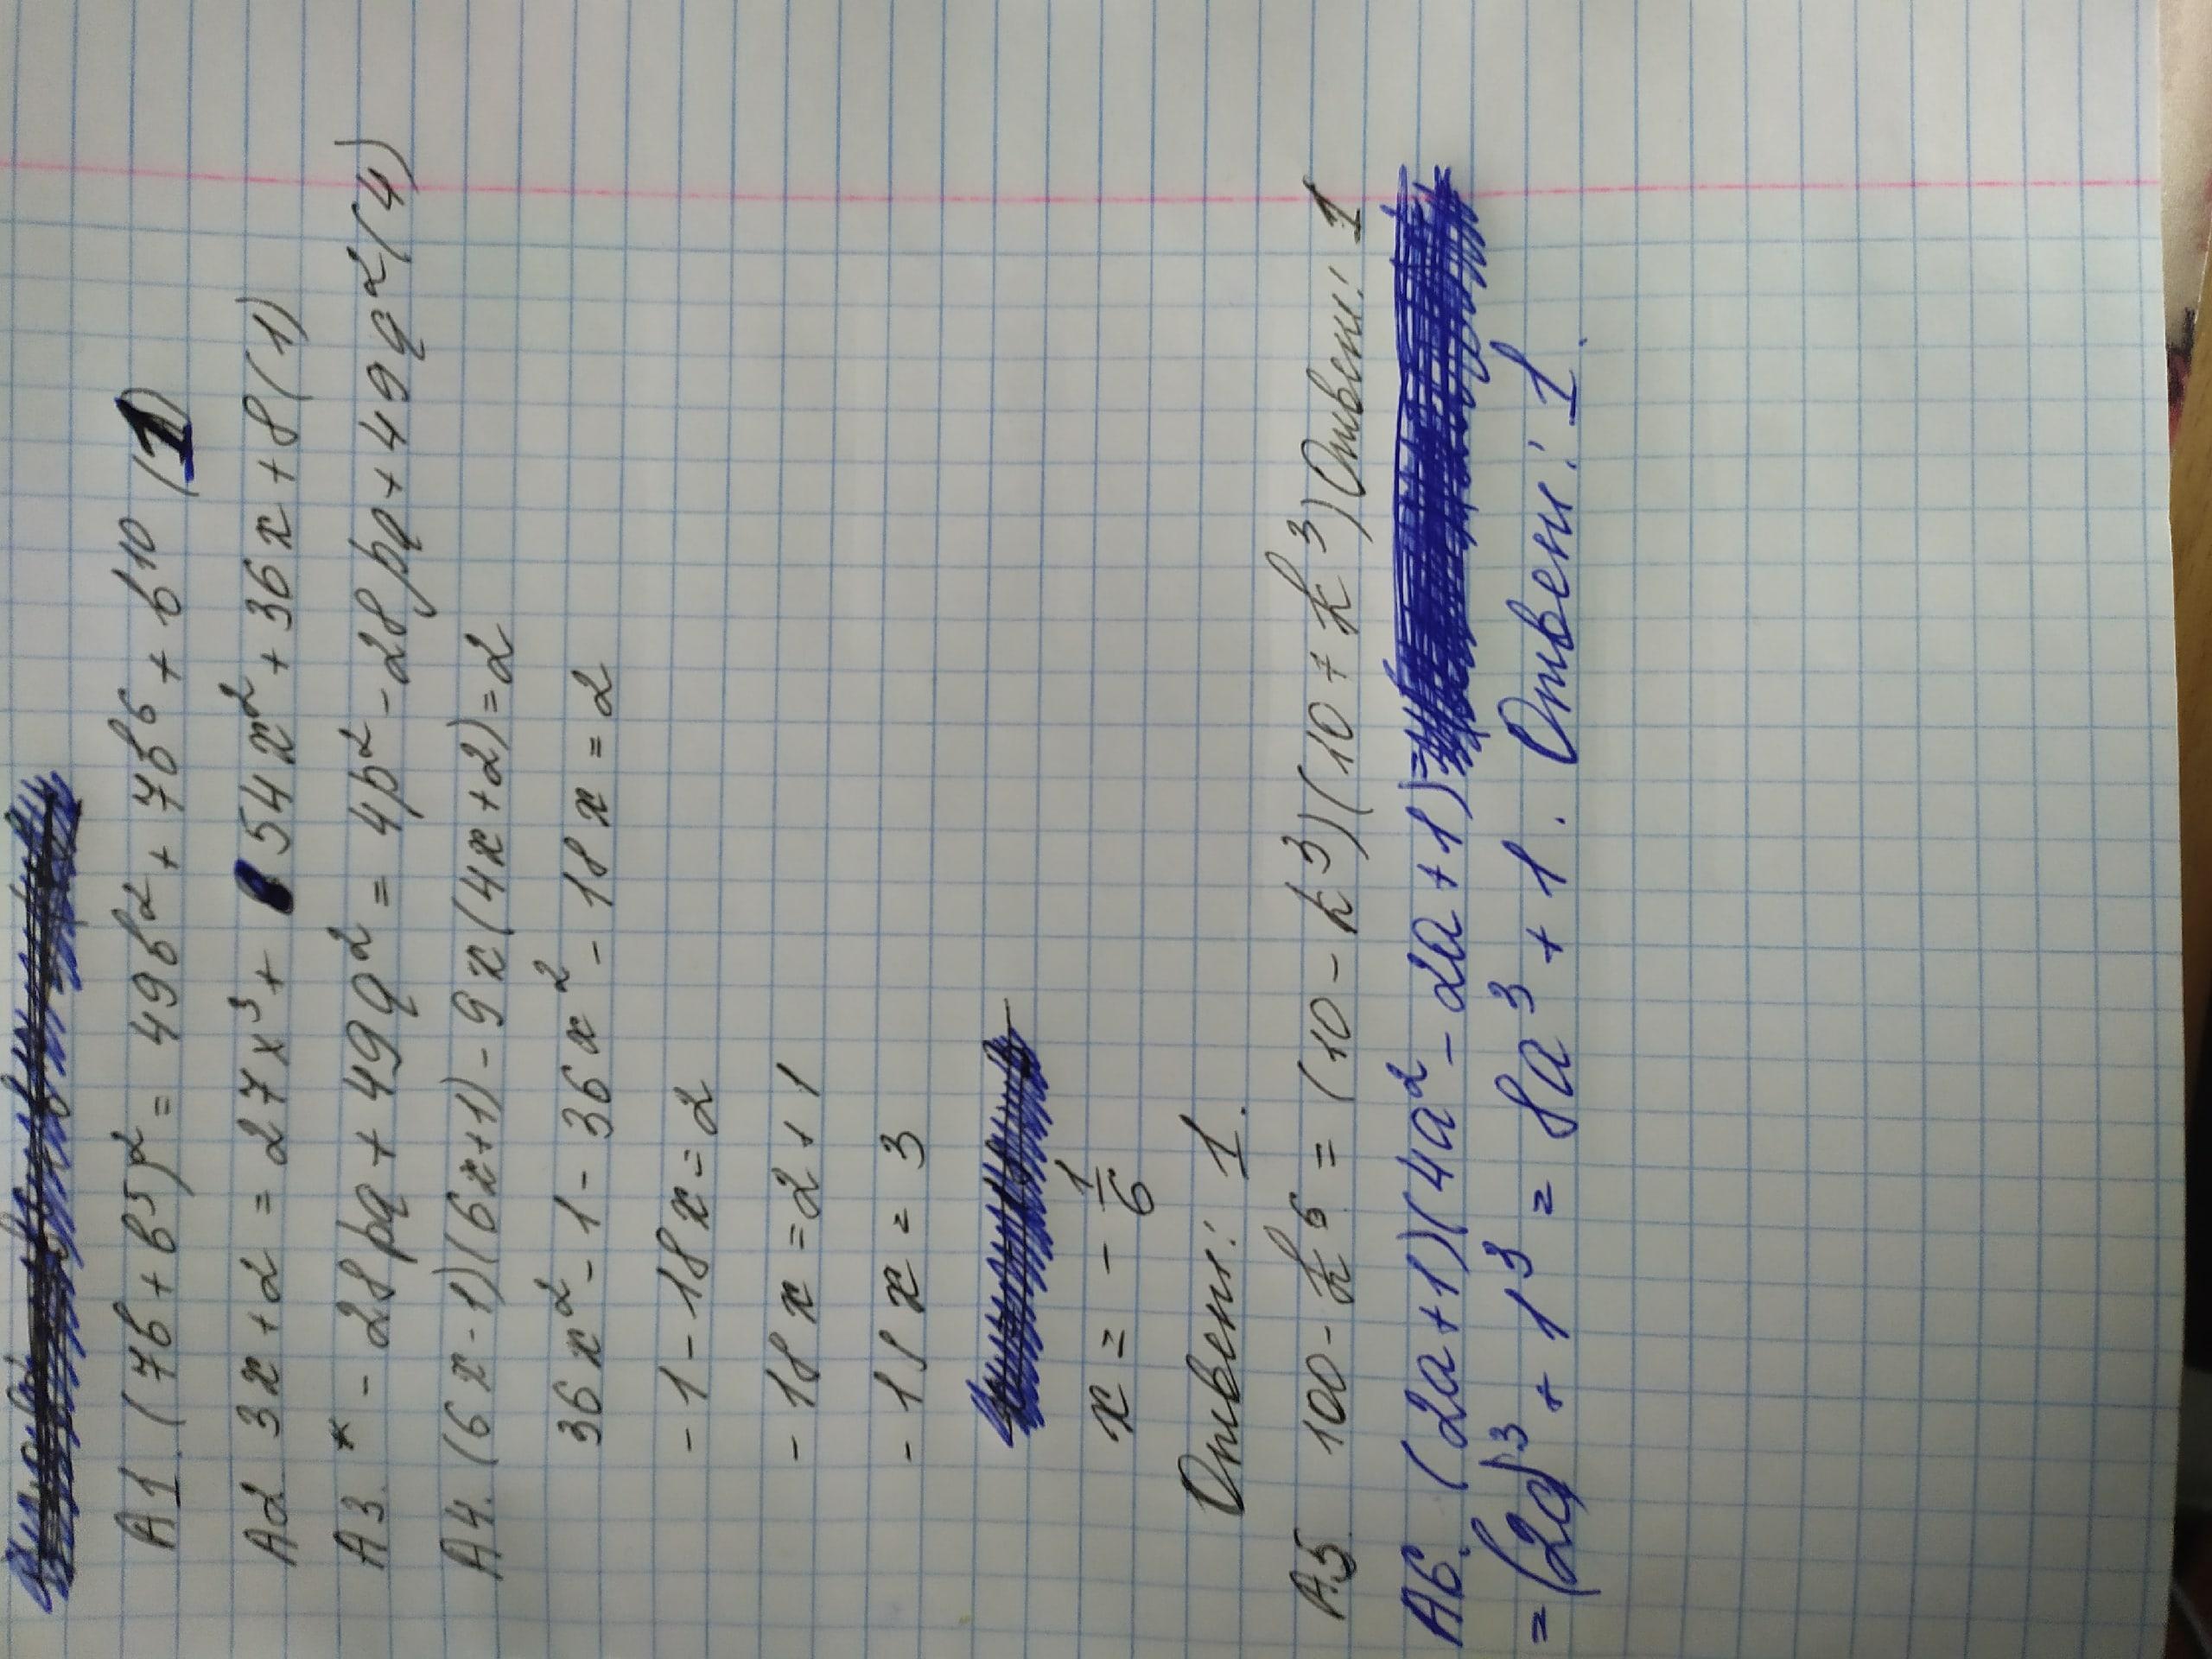 А1. (7b + b⁵)² = 49b² + 7b⁶ + b¹⁰ (1)
А2 3x + 2 = 27x³ + 54x² + 36x + 8 (1)
А3. * - 28pq + 49q² = 4p² - 28pq + 49q² (4)
А4. (6x - 1)(6x + 1) - 9x(4x + 2) = 2
36x² - 1 - 36x² - 18x = 2
- 1 - 18x = 2
- 18x = 2 + 1
- 18x = 3
x = - 1/6
Ответ: 1.
А5 100 - k⁶ = (10 - k³)(10 + k³) Ответ: 1
А6. (2a + 1)(4a² - 2a + 1) =
= (2a)³ + 1³ = 8a³ + 1. Ответ: 1.